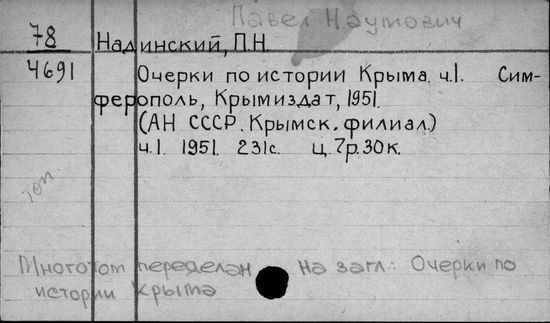 Павел Наумович
78
Надинский, П.Н.
4691
Очерки по истории Крыма. ч.1. Сим-
ферополь, Крымиздат, 1951.
(АН СССР. Крымск. филиал.)
ч.1. 1951. 231с. ц.7р.30к.
Многотом переделан на загл.: Очерки по
истории Крыма